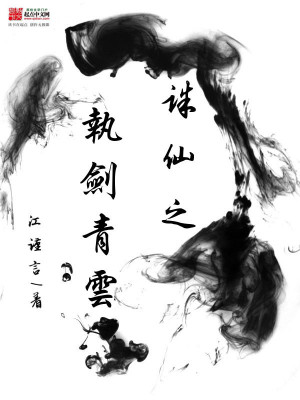 起点中文网
www.qidian.com
诛仙之
執劍青雲
江谨言\著